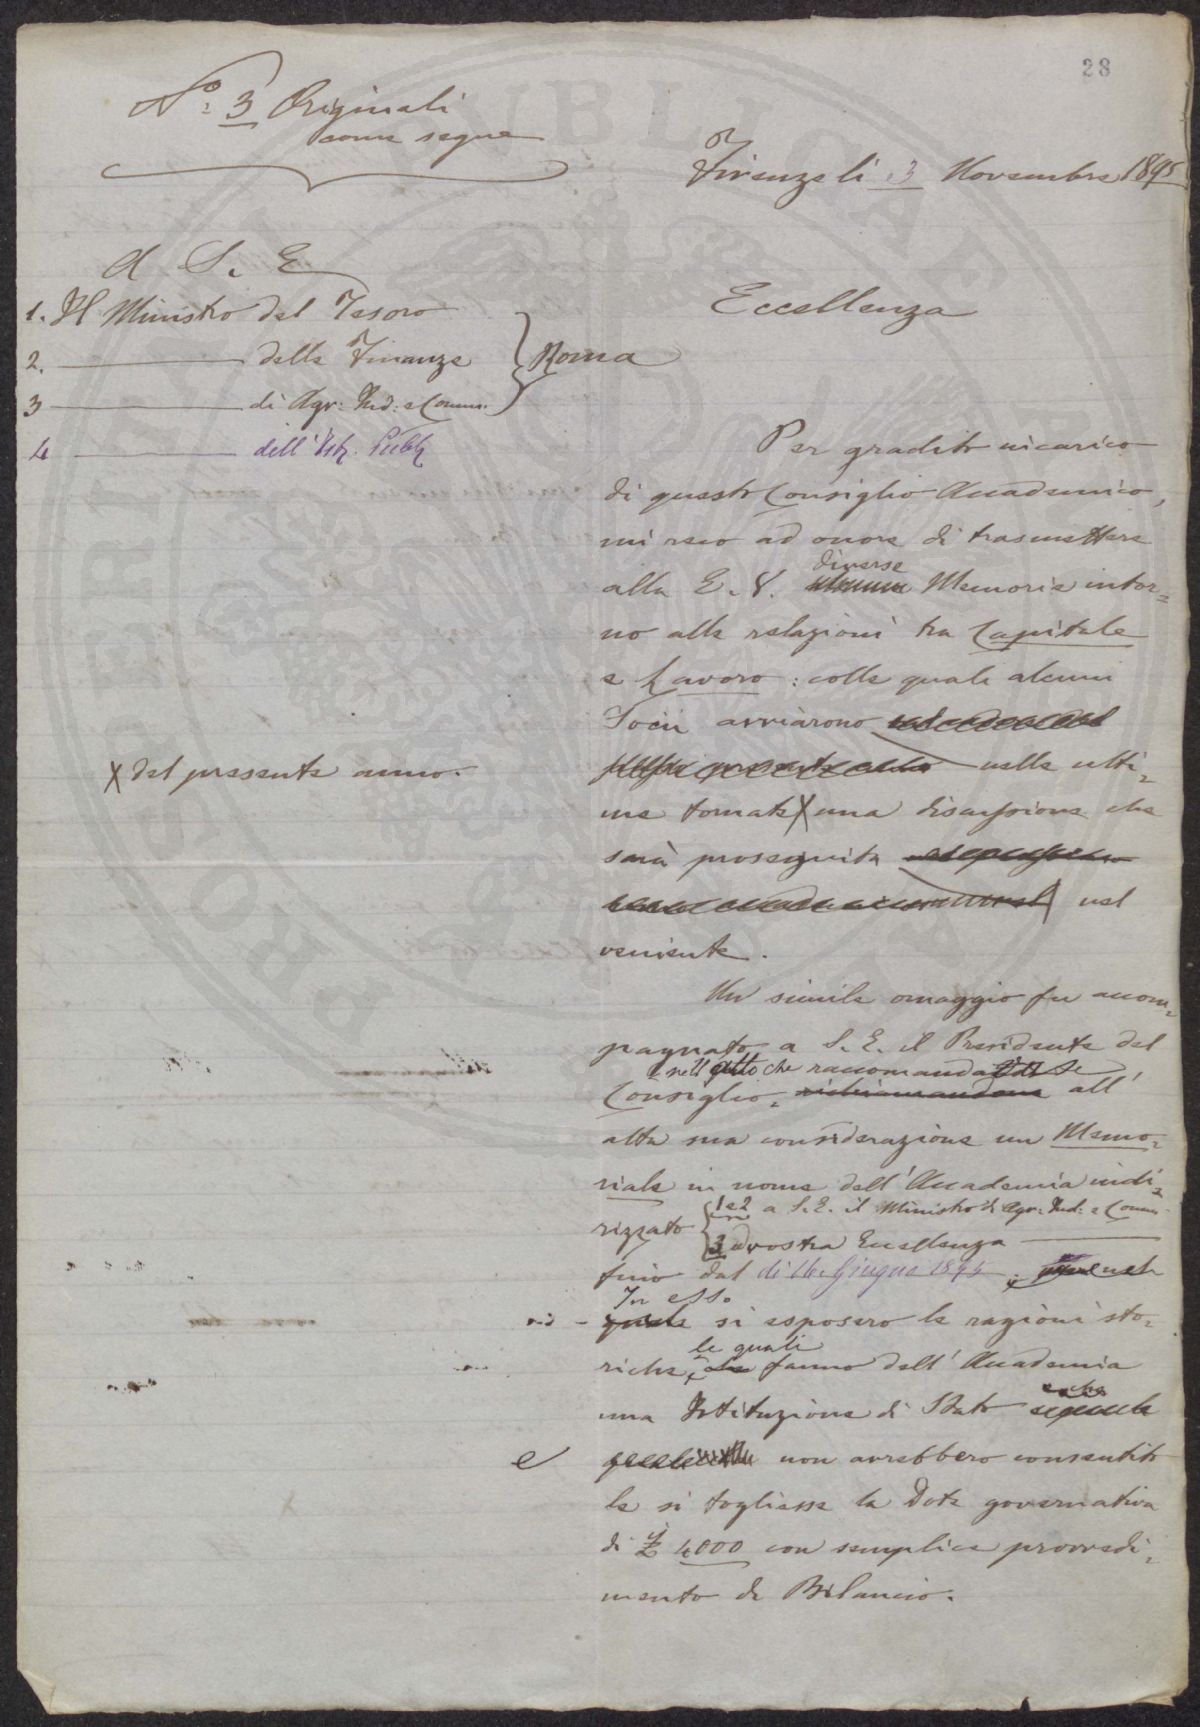 28
N.º 3 Originali
come segue
Firenze li 3 Novembre 1895
A S. E
1. Il Ministro del Tesoro
2. ——— delle Finanze
3 ——— di Agr: Ind: e Comm.
4 ——— dell'Istr. Pubb
Roma
Eccellenza
Per gradito incarico
di questo Consiglio Accademico,
mi reco ad onore di trasmettere
diverse
alla E. V. alcune Memorie intor=
no alle relazioni tra Capitale
e Lavoro: colle quali alcuni
Socii avviarono
presente anno nelle ulti=
X del presente anno.
me tornate X una discussione che
sarà proseguita
nel
veniente.
Un simile omaggio fu accom=
pagnato a S. E. il Presidente del
nell'atto che raccomandavasi
Consiglio, richiamandone all'
alta sua considerazione un Memo=
riale in nome dell'Accademia indi=
rizzato
1 e 2 a S. E. il Ministro di Agr: Ind: e Comm.
3 a vostra Eccellenza ———
fino dal dì 16. Giugno 1895.
In esso
quale si esposero le ragioni sto=
le quali
riche, che fanno dell'Accademia
una Istituzione di Stato
e
non avrebbero consentito
le si togliesse la Dote governativa
di £ 4000 con semplice provvedi=
mento di Bilancio.